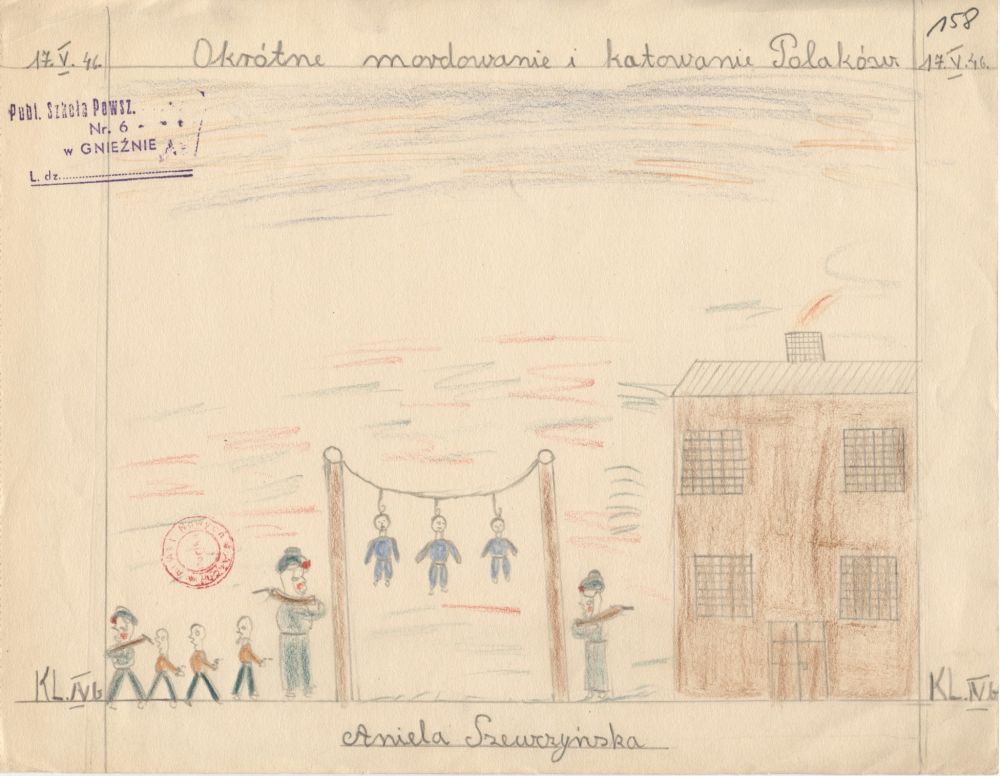 158
17.V.46. Okrótne mordowanie i katowanie Polaków 17.V.46.
Publ. Szkoła Powsz.
Nr. 6
w GNIEŹNIE
L. dz.
KL. IVb KL. IVb
Aniela Szewczyńska